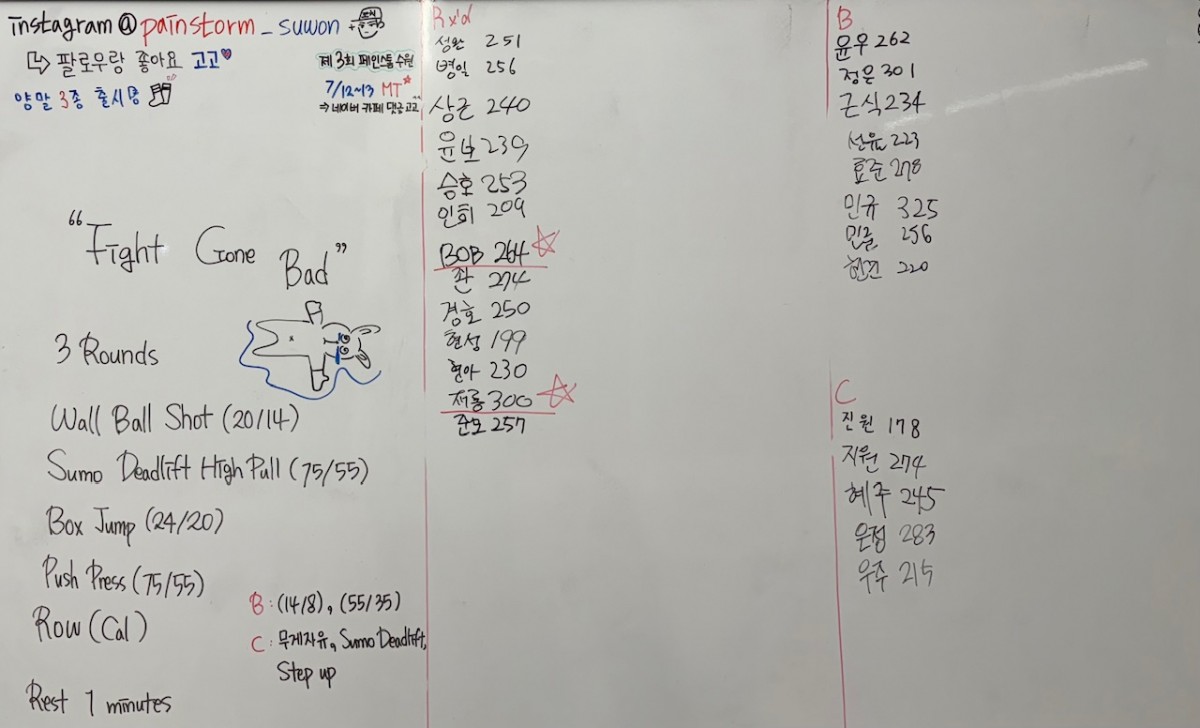 instagram @ painstorm_suwon
팔로우랑 좋아요 고고
양말 3종 출시중
제 3회 페인스톰 수원
7/12~13 MT
⇒ 네이버 카페 댓글 고고
"Fight Gone Bad"
3 Rounds
Wall Ball Shot (20/14)
Sumo Deadlift High Pull (75/55)
Box Jump (24/20)
Push Press (75/55)
Row (Cal)
Rest 1 minutes
B : (14/8), (55/35)
C : 무게자유, Sumo Deadlift,
Step up
Rx'd
성완 251
병일 256
상근 240
윤보 239
승호 253
인희 209
BOB 264
좐 274
경호 250
현성 199
현아 230
재룡 300
준모 257
B
윤우 262
정은 301
근식 234
선유 223
효준 278
민규 325
256
220
C
진원 178
지원 274
혜주 245
은정 283
우주 215